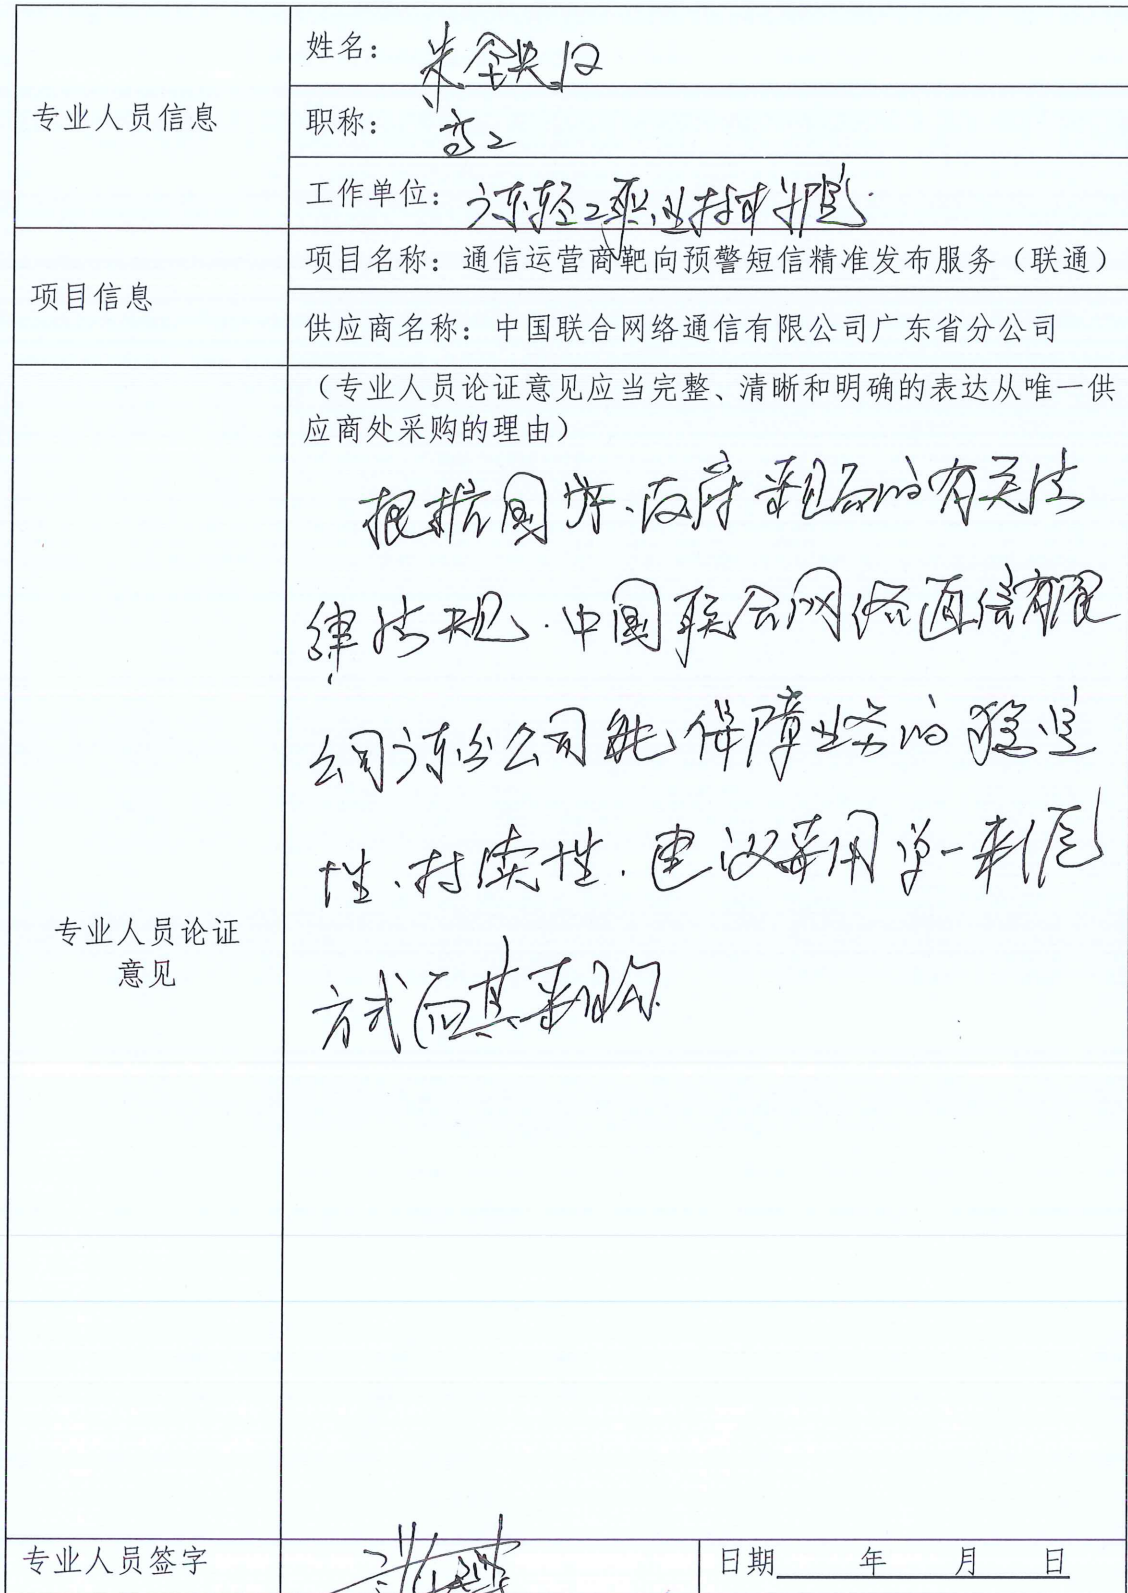 专业人员信息
姓名：
职称：高工
工作单位：广东轻工职业技术学院
项目信息
项目名称：通信运营商靶向预警短信精准发布服务（联通）
供应商名称：中国联合网络通信有限公司广东省分公司
专业人员论证
意见
（专业人员论证意见应当完整、清晰和明确的表达从唯一供
应商处采购的理由）
根据国家、政府采购的有关法
律法规.中国联合网络通信有限
公司广东分公司能保障业务的稳定
性、持续性.建议采用单一来源
方式向其采购
专业人员签字
日期 年 月 日